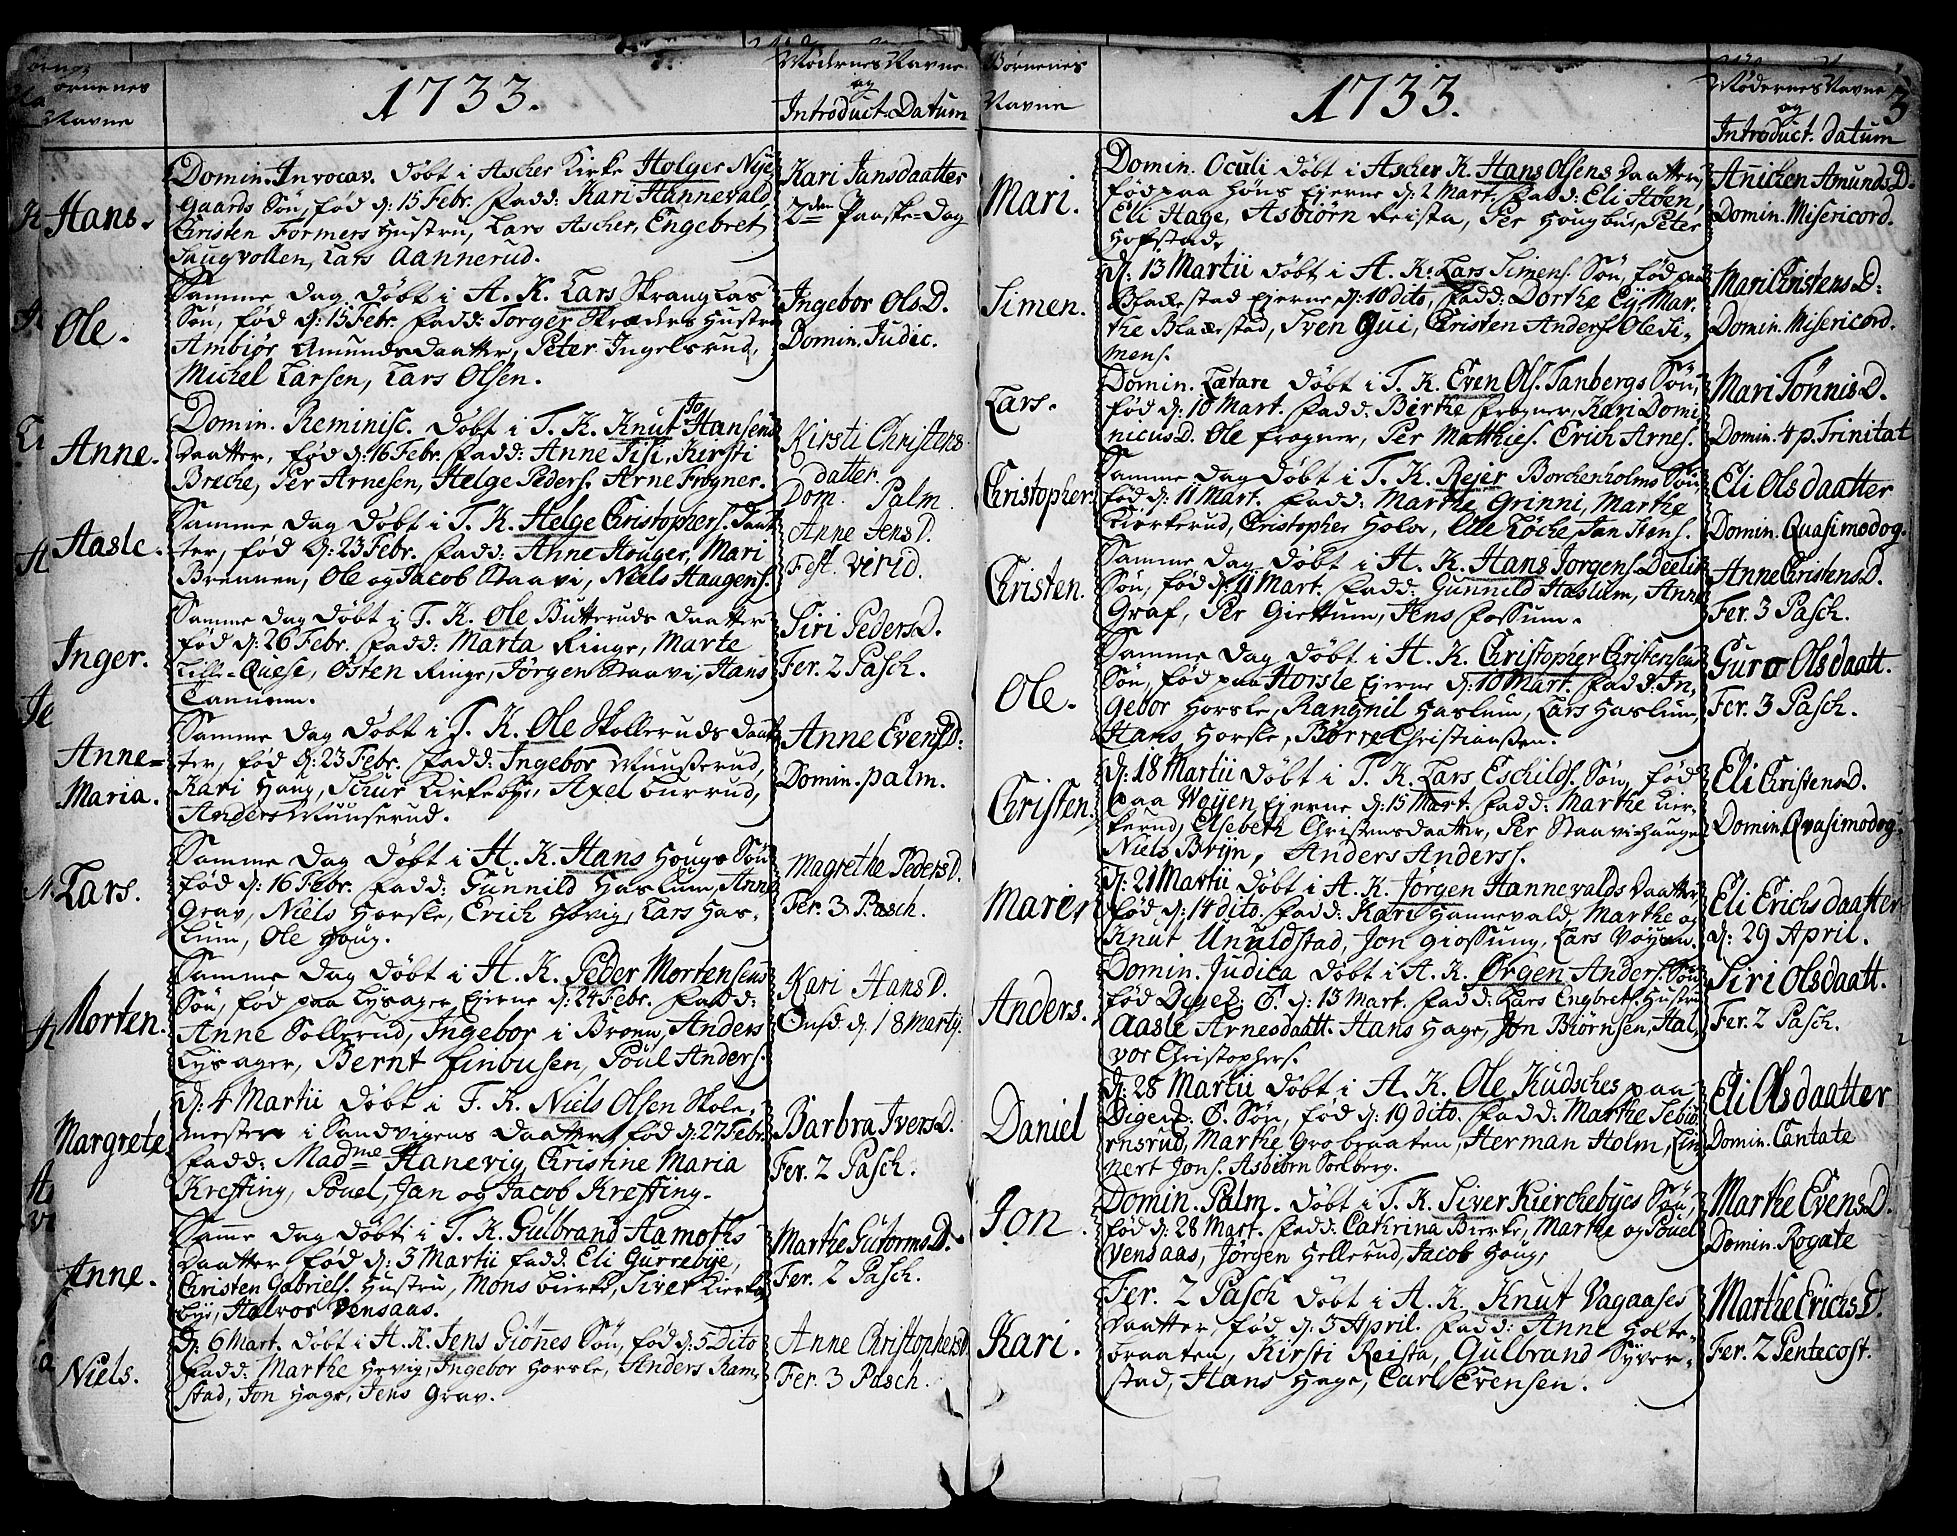 Børnenes
Navne
1733.
Mødernes Navne
og
Introduct. Datum
Hans.
Domin. Invocav. døbt i Ascher Kirke Holger Nye
gaards Søn, fød d: 15 Febr. Fadd: Kari Hannevald
Christen Formers Hustru, Lars Ascher, Engebret
Haugvollen, Lars Aannerud.
Kari Jansdaatter
2den Paaske-Dag
Ole.
Samme dag døbt i A. K. Lars
Søn, fød d: 15 Febr. Fadd: Torger Skræders Hustru
Ambiør Amundsdaatter, Peter Ingelsrud,
Michel Larsen, Lars Olsen.
Ingebor OlsD.
Domin. Judic.
Anne.
Domin. Reminisc. døbt i T. K. Knut Jo Hansens
Daatter, fød d: 16 Febr. Fadd: Anne Tisi, Kirsti
Breche, Per Arnesen, Helge Peders. Arne Frogner.
Kirsti Christens
datter.
Dom. Palm.
Aasle.
Samme dag døbt i T. K. Helge Christophers. Daat
ter, fød d: 23 Febr. Fadd: Anne Houger, Mari
Brennen, Ole og Jacob Staavi, Niels Haugens.
Anne JensD.
Fest. Virid.
Inger.
Samme dag døbt i T. K. Ole Butteruds Daatter
fød d: 26 Febr. Fadd: Marta Ringe, Marte
Lille-Quese, Østen Ringe, Jørgen Staavi, Hans
Tannum.
Siri PedersD.
Fer. 2 Pasch.
Anne-
Maria.
Samme dag døbt i T. K. Ole Skolleruds Daat
ter, fød d: 23 Febr. Fadd: Ingebor Muuserud,
Kari Haug, Kirkebye, Axel Burud,
Anders Muuserud.
Anne EvensD:
Domin. palm.
Lars.
Samme dag døbt i H. K. Hans Hougs Søn
fød d: 16 Febr. Fadd: Gunnild Haslum, Anne
Grav, Niels Horsle, Erich Høvig, Lars Has-
lum, Ole Houg.
Magrethe PedersD.
Fer. 3 Pasch.
Morten.
Samme dag døbt i H. K. Peder Mortensens
Søn, fød paa Lysager Ejerne d: 24 Febr. Fadd:
Anne Sollerud, Ingebor i Broen, Anders
Lysager, Bernt Finbusen, Poul Anders.
Kari HansD.
Onsd. d. 18 Martij.
Margrete
d: 4 Martii døbt i T. K. Niels Olsen Skole-
mester i Sandvigens Daatter fød d: 27 Febr.
Fadd: Madme Hanevig, Christine Maria
Krefting, Pouel, Jan og Jacob Krefting.
Barbra IversD.
Fer. 2 Pasch.
Anne.
Samme dag døbt i T. K. Gulbrand Aamoths
Daatter, fød d: 3 Martii Fadd. Eli Gurrebye,
Christen Gabriels. Hustru, Mons Bierke, Siver Kierke
bye, Halvor Vensaas.
Marthe GutormsD.
Fer. 2 Pasch.
Niels.
d: 6 Mart. døbt i H. K. Jens Giønnes Søn, fød d: 5 Dito
Fadd: Marthe Høvig, Ingebor Horsle, Anders Ram
stad, Jon Hage, Jens Grav.
Anne ChristophersD
Fer. 3 Pasch.
Børnenes
Navne
1733.
Mødernes Navne
og
Introduct. datum
3
Mari.
Domin. Oculi døbt i Ascher K. Hans Olsens Daatter,
fød paa Høns Ejerne d: 2 Mart. Fadd: Eli Høen,
Eli Hage, Asbiørn Reista, Per Hougbøe, Peter
Hofstad.
Anichen AmundsD.
Domin. Misericord.
Simen.
d: 13 Martii døbt i A. K. Lars Simens. Søn, fød paa
Blakestad Ejerne d: 10 dito, Fadd: Dorthe Ey, Mar-
the Blakestad, Sven Gui, Christen Anders. Ole Si-
mens.
Mari ChristensD:
Domin. Misericord.
Lars.
Domin. Lætare døbt i T. K. Even Ols. Tanbergs Søn,
fød d: 10 Mart. Fadd: Birthe Frogner, Kari Domi
nicusD. Ole Frogner, Per Matthies. Erich Arnes.
Mari TønnisD.
Domin. 4 p. Trinitat
Christopher
Samme dag døbt i T. K. Rejer Borchenholms Søn,
fød d: 11 Mart. Fadd: Marthe Grinni, Marthe
Kiørkerud, Christopher Holov, Elle Løcke, Jan Stens.
Eli Olsdaatter
Domin. Quasimodog.
Christen.
Samme dag døbt i H. K. Hans Jørgens. Deelis
Søn, fød d: 11 Mart. Fadd: Gunnild Haslum, Anne
Graf, Per Giettum, Jens Fossum.
Anne ChristensD.
Fer. 3 Pasch.
Ole.
Samme dag døbt i H. K. Christopher Christensens
Søn, fød paa Horsle Ejerne d: 10 Mart. Fadd: In,
gebor Horsle, Rangnil Haslum, Lars Haslum,
Hans Horsle, Børre Christiansen.
Guro Olsdaatt.
Fer. 3 Pasch.
Christen.
d: 18 Martii døbt i T. K. Lars Eschilds. Søn, fød
paa Wøyen Ejerne d: 15 Mart. Fadd: Marthe Kier-
kerud, Elsebeth Christensdaatter, Per Staavihaugen
Niels Bryn, Anders Anderss.
Eli ChristensD.
Domin. Qvasimodog.
Mari.
d: 21 Martii døbt i A. K. Jørgen Hannevalds Daatter,
fød d: 14 dito. Fadd: Kari Hannevald, Marthe og
Knut Unuldstad, Jon Giossung, Lars Vøyen.
Eli Erichsdaatter
d: 29 April.
Anders.
Domin. Judica døbt i A. K. Ørgen Anders. Søn
fød Digel. E. d: 13 Mart. Fadd: Lars Engbrets. Hustru
Aasle Arnesdaatt. Hans Hage, Jon Biørnsen, Hal,
vor Christophers.
Siri Olsdaatt.
Fer. 2 Pasch.
Daniel
d: 28 Martii døbt i A. K. Ole Kudsches paa
Digel. E. Søn, fød d: 19 dito. Fadd: Marthe
ernsrud, Marthe Grobraaten, Herman Holm, Lin
nert Jons. Asbiørn Solberg.
Eli Olsdaatter
Domin. Cantate
Jon.
Domin. Palm. døbt i T. K. Siver Kierchebyes Søn,
fød d: 28 Mart. Fadd: Cathrina Bierke, Marthe og Pouel
Vensaas, Jørgen Hellerud, Jacob Houg,
Marthe EvensD.
Domin. Rogate
Kari.
Fer. 2 Pasch døbt i A. K. Knut Vagaases
Daatter, fød d: 3 April. Fadd: Anne Holte-
braaten, Kirsti Reista, Gulbrand Syver-
stad, Hans Hage, Carl Evensen.
Marthe ErichsD.
Fer. 2 Pentecost.